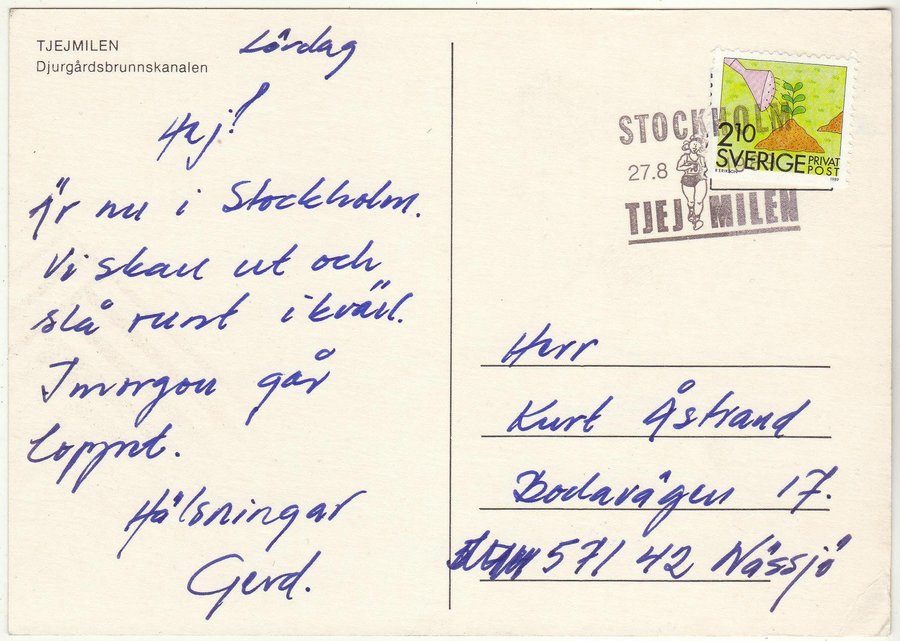 TJEJMILEN
Djurgårdsbrunnskanalen
Lördag
Hej!
Är nu i Stockholm.
Vi skall ut och
slå runt ikväll.
Imorgon går
loppet.
Hälsningar
Gerd.
STOCKHOLM
27.8
TJEJMILEN
2.10
SVERIGE PRIVAT
POST
1989
Herr
Kurt Åstrand
Bodavägen 17.
571 42 Nässjö